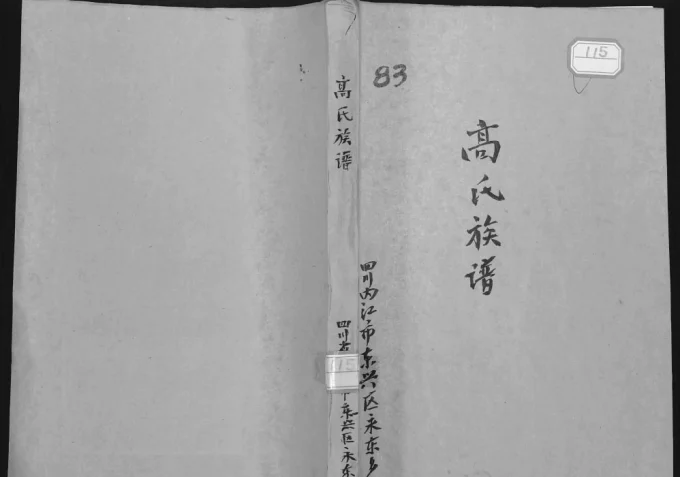 115
83
高氏族谱
四川内江市东兴区永东乡
高氏族谱
四川省
115
东兴区永东